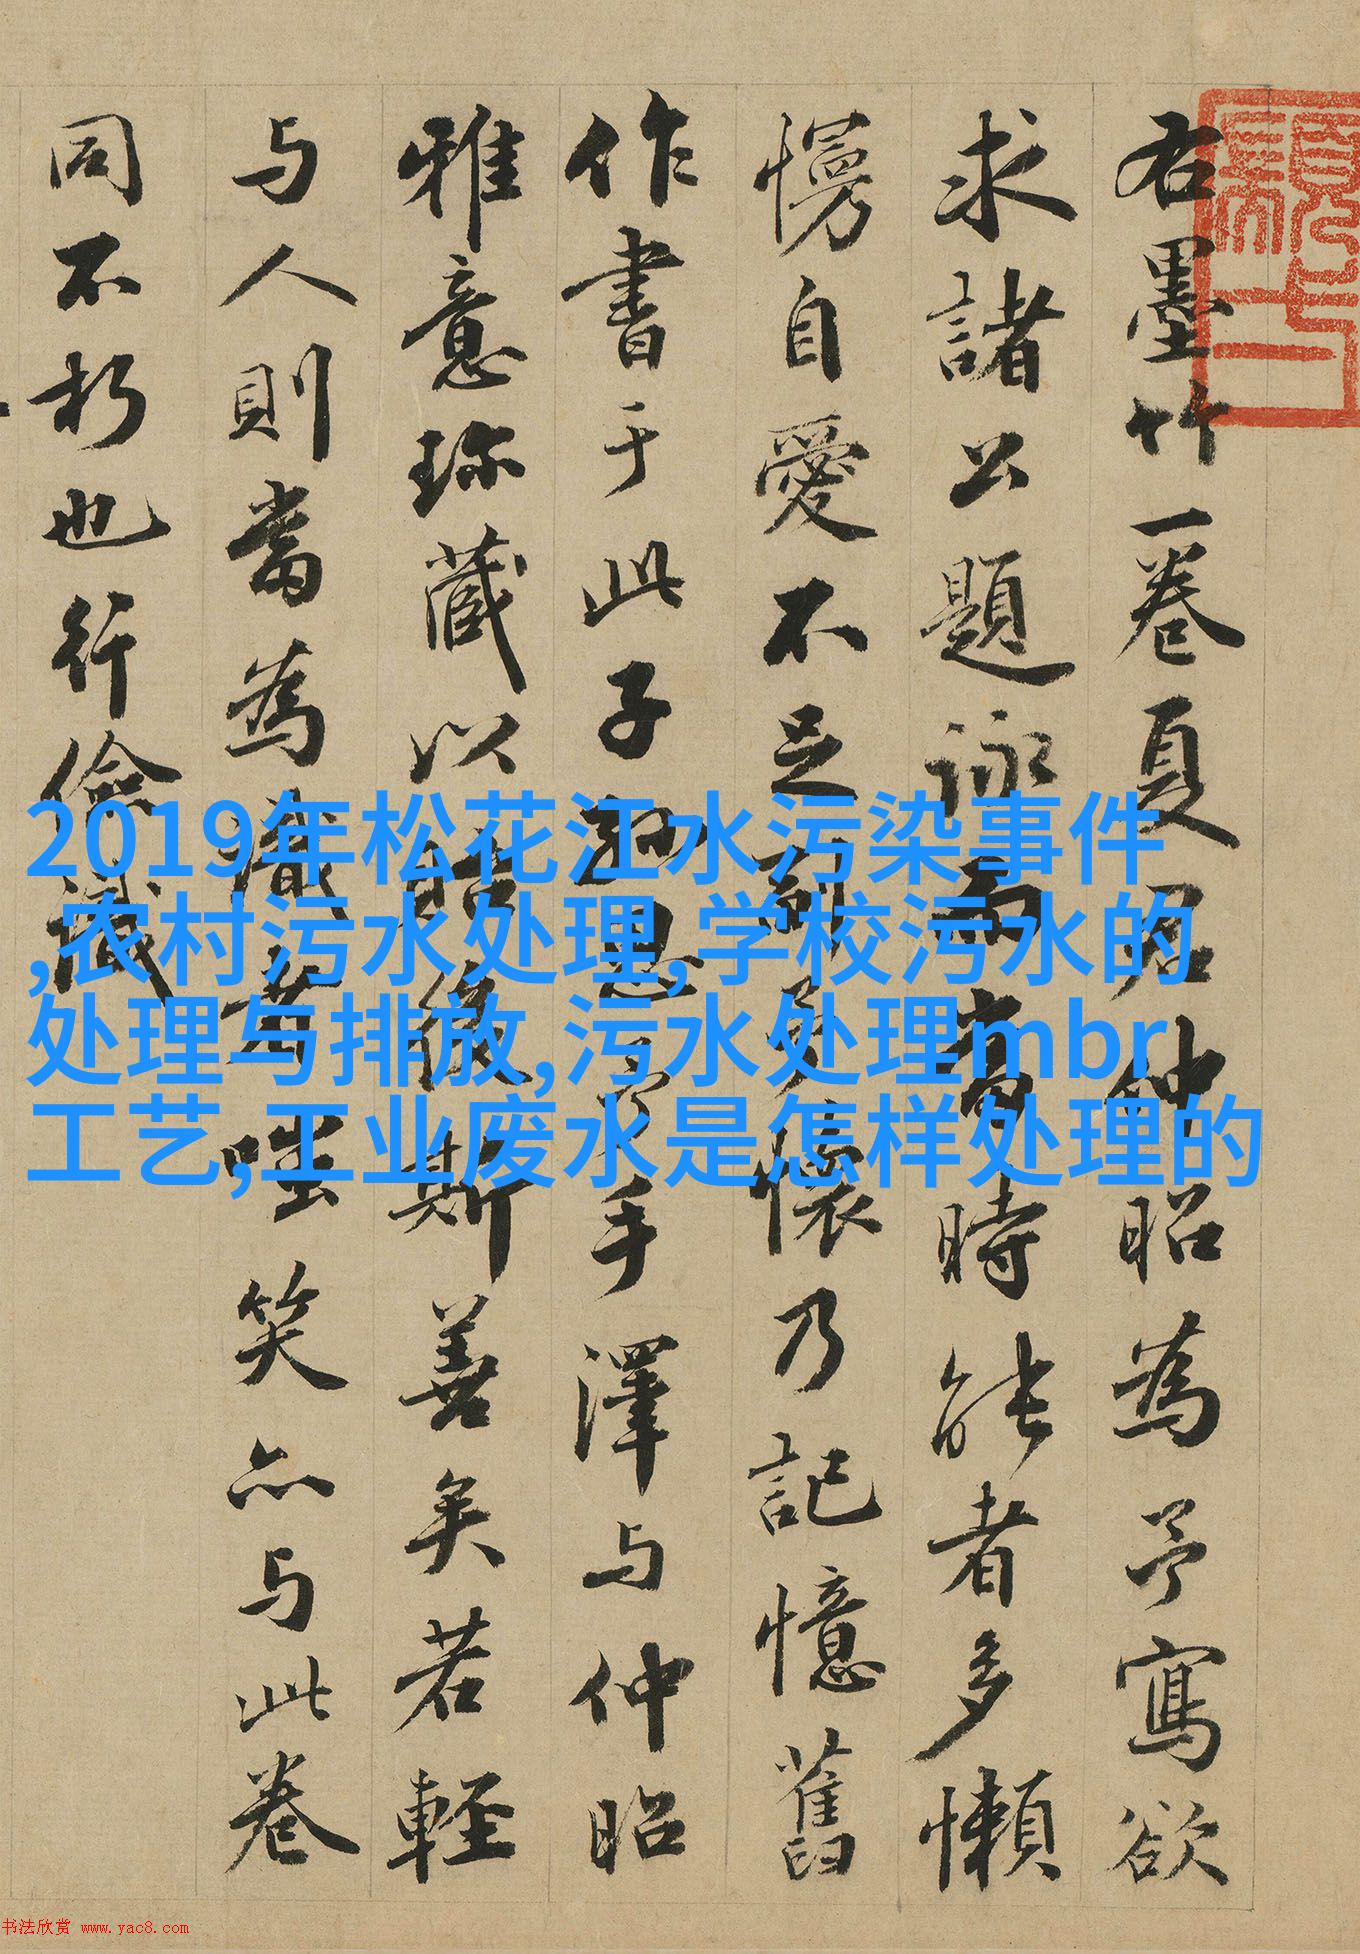 右墨竹一卷夏君仲昭為予寫欲
求諸公題詠而當時能者多懶
慢自愛不足副予懷乃記憶舊
作書于此子孫思予手澤与仲昭
雅意珎藏以貽後斯善矣若輕
与人則當為識者嗤笑亦与此卷
同不朽也行儉識
2019年松花江水污染事件
,农村污水处理,学校污水的
处理与排放,污水处理mbr
工艺,工业废水是怎样处理的
书法欣赏 www.yac8.com